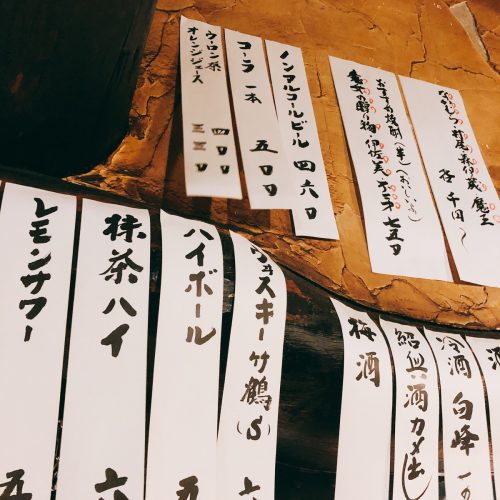 ノンアルコールビール 四六〇
コーラ 一本 五〇〇
ウーロン茶 四〇〇
オレンジジュース 三三〇
村尾 森伊蔵 魔王
お すすめ焼酎(芋)
魔女の贈り物 伊佐美
七五〇
レモンサワー 五
抹茶ハイ 六
ハイボール 五
ウィスキー竹鶴(S) 六
梅酒
紹興酒カメ出し
冷酒 白峰 一の
酒